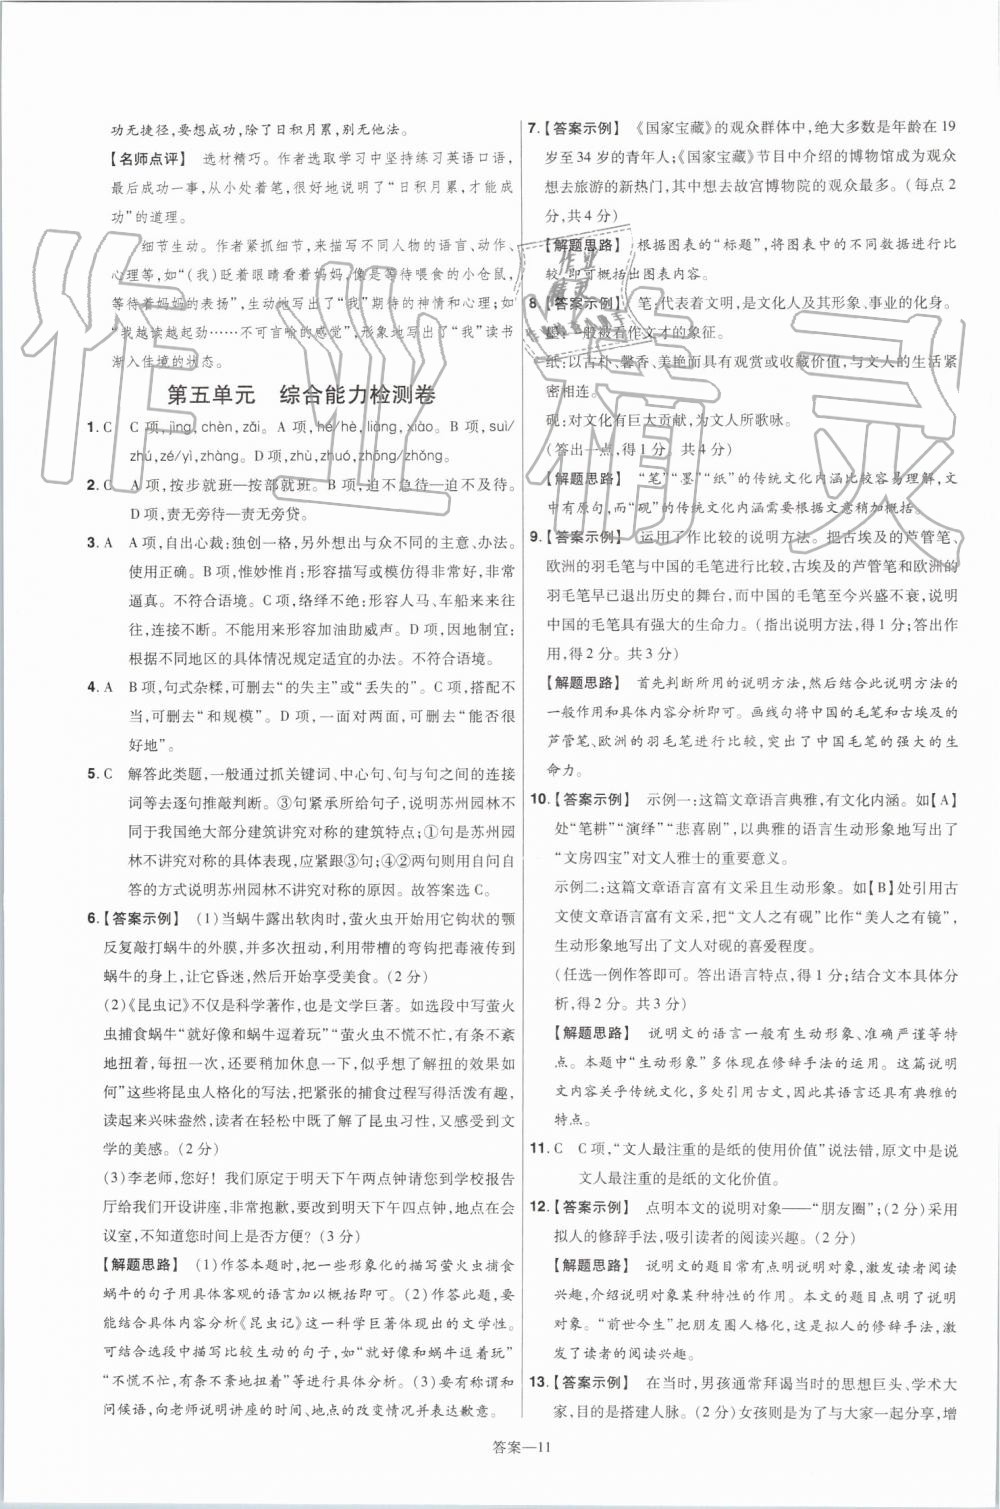 功无捷径,要想成功,除了日积月累,别无他法。
【名师点评】 选材精巧。作者选取学习中坚持练习英语口语,
最后成功一事,从小处着笔,很好地说明了“日积月累,才能成
功”的道理。
细节生动。作者紧抓细节,来描写不同人物的语言、动作、
心理等,如“(我)眨着眼睛看着妈妈,像是等待喂食的小仓鼠,
等待着妈妈的表扬”,生动地写出了“我”期待的神情和心理;如
“我越读越起劲……不可言喻的感觉”,形象地写出了“我”读书
渐入佳境的状态。
第五单元 综合能力检测卷
1. C C项,jīng,chèn,zǎi。A项,hé/hè,liáng,xiào。B项,suì/
zhú,zé/yì,zhàng。D项,zhù,zhuó,zhōng/zhǒng。
2. C A项,按步就班—按部就班。B项,迫不急待—迫不及待。
D项,责无旁待—责无旁贷。
3. A A项,自出心裁:独创一格,另外想出与众不同的主意、办法。
使用正确。B项,惟妙惟肖:形容描写或模仿得非常好,非常
逼真。不符合语境。C项,络绎不绝:形容人马、车船来来往
往,连接不断。不能用来形容加油助威声。D项,因地制宜:
根据不同地区的具体情况规定适宜的办法。不符合语境。
4. A B项,句式杂糅,可删去“的失主”或“丢失的”。C项,搭配不
当,可删去“和规模”。D项,一面对两面,可删去“能否很
好地”。
5. C 解答此类题,一般通过抓关键词、中心句、句与句之间的连接
词等去逐句推敲判断。③句紧承所给句子,说明苏州园林不
同于我国绝大部分建筑讲究对称的建筑特点;①句是苏州园
林不讲究对称的具体表现,应紧跟③句;④②两句则用自问自
答的方式说明苏州园林不讲究对称的原因。故答案选C。
6.【答案示例】 (1)当蜗牛露出软肉时,萤火虫开始用它钩状的颚
反复敲打蜗牛的外膜,并多次扭动,利用带槽的弯钩把毒液传到
蜗牛的身上,让它昏迷,然后开始享受美食。(2分)
(2)《昆虫记》不仅是科学著作,也是文学巨著。如选段中写萤火
虫捕食蜗牛“就好像和蜗牛逗着玩”“萤火虫不慌不忙,有条不紊
地扭着,每扭一次,还要稍加休息一下,似乎想了解扭的效果如
何”这些将昆虫人格化的写法,把紧张的捕食过程写得活泼有趣,
读起来兴味盎然,读者在轻松中既了解了昆虫习性,又感受到文
学的美感。(2分)
(3)李老师,您好!我们原定于明天下午两点钟请您到学校报告
厅给我们开设讲座,非常抱歉,要改到明天下午四点钟,地点在会
议室,不知道您时间上是否方便?(3分)
【解题思路】 (1)作答本题时,把一些形象化的描写萤火虫捕食
蜗牛的句子用具体客观的语言加以概括即可。(2)作答此题,要
能结合具体内容分析《昆虫记》这一科学巨著体现出的文学性。
可结合选段中描写比较生动的句子,如“就好像和蜗牛逗着玩”
“不慌不忙,有条不紊地扭着”等分析。(3)要有称谓和
问候语,向老师说明讲座的时间、地点的改变情况并表达歉意。
7.【答案示例】 《国家宝藏》的观众群体中,绝大多数是年龄在19
岁至34岁的青年人;《国家宝藏》节目中介绍的博物馆成为观众
想去旅游的新热门,其中想去故宫博物院的观众最多。(每点2
分,共4分)
【解题思路】 根据图表的“标题”,将图表中的不同数据进行比
较,即可概括出图表内容。
8.【答案示例】 笔:代表着文明,是文化人及其形象、事业的化身。
墨:一般被看作文才的象征。
纸:以古朴、馨香、美艳而具有观赏或收藏价值,与文人的生活紧
密相连。
砚:对文化有巨大贡献,为文人所歌咏。
(答出一点,得1分。共4分)
【解题思路】 “笔”“墨”“纸”的传统文化内涵比较容易理解,文
中有原句,而“砚”的传统文化内涵需要根据文章稍加概括。
9.【答案示例】 运用了作比较的说明方法。把古埃及的芦管笔、
欧洲的羽毛笔与中国的毛笔进行比较,古埃及的芦管笔和欧洲的
羽毛笔早已退出历史的舞台,而中国的毛笔至今兴盛不衰,说明
中国的毛笔具有强大的生命力。(指出说明方法,得1分;答出作
用,得2分。共3分)
【解题思路】 首先判断所用的说明方法,然后结合此说明方法的
一般作用和具体内容分析即可。画线句将中国的毛笔和古埃及的
芦管笔、欧洲的羽毛笔进行比较,突出了中国毛笔的强大的生
命力。
10.【答案示例】 示例一:这篇文章语言典雅,有文化内涵。如【A】
处“笔耕”“演绎”“悲喜剧”,以典雅的语言生动形象地写出了
“文房四宝”对文人雅士的重要意义。
示例二:这篇文章语言富有文采且生动形象。如【B】处引用古
文使文章语言富有文采,把“文人之有砚”比作“美人之有镜”,
生动形象地写出了文人对砚的喜爱程度。
(任选一例作答即可。答出语言特点,得1分;结合文本具体分
析,得2分。共3分)
【解题思路】 说明文的语言一般有生动形象、准确严谨等特
点。本题中“生动形象”多体现在修辞手法的运用。这篇说明
文内容关乎传统文化,多处引用古文,因此其语言还具有典雅的
特点。
11. C C项,“文人最注重的是纸的使用价值”说法错,原文中是说
文人最注重的是纸的文化价值。
12.【答案示例】 点明本文的说明对象——“朋友圈”;(2分)采用
拟人的修辞手法,吸引读者的阅读兴趣。(2分)
【解题思路】 说明文的题目常有点明说明对象,激发读者阅读
兴趣,介绍说明对象某种特性的作用。本文的题目点明了说明
对象。“前世今生”把朋友圈人格化,这是拟人的修辞手法,激
发了读者的阅读兴趣。
13.【答案示例】 在当时,男孩通常拜谒当时的思想巨头、学术大
家,目的是搭建人脉。(2分)女孩则是为了与大家一起分享,增
答案—11
作业精灵